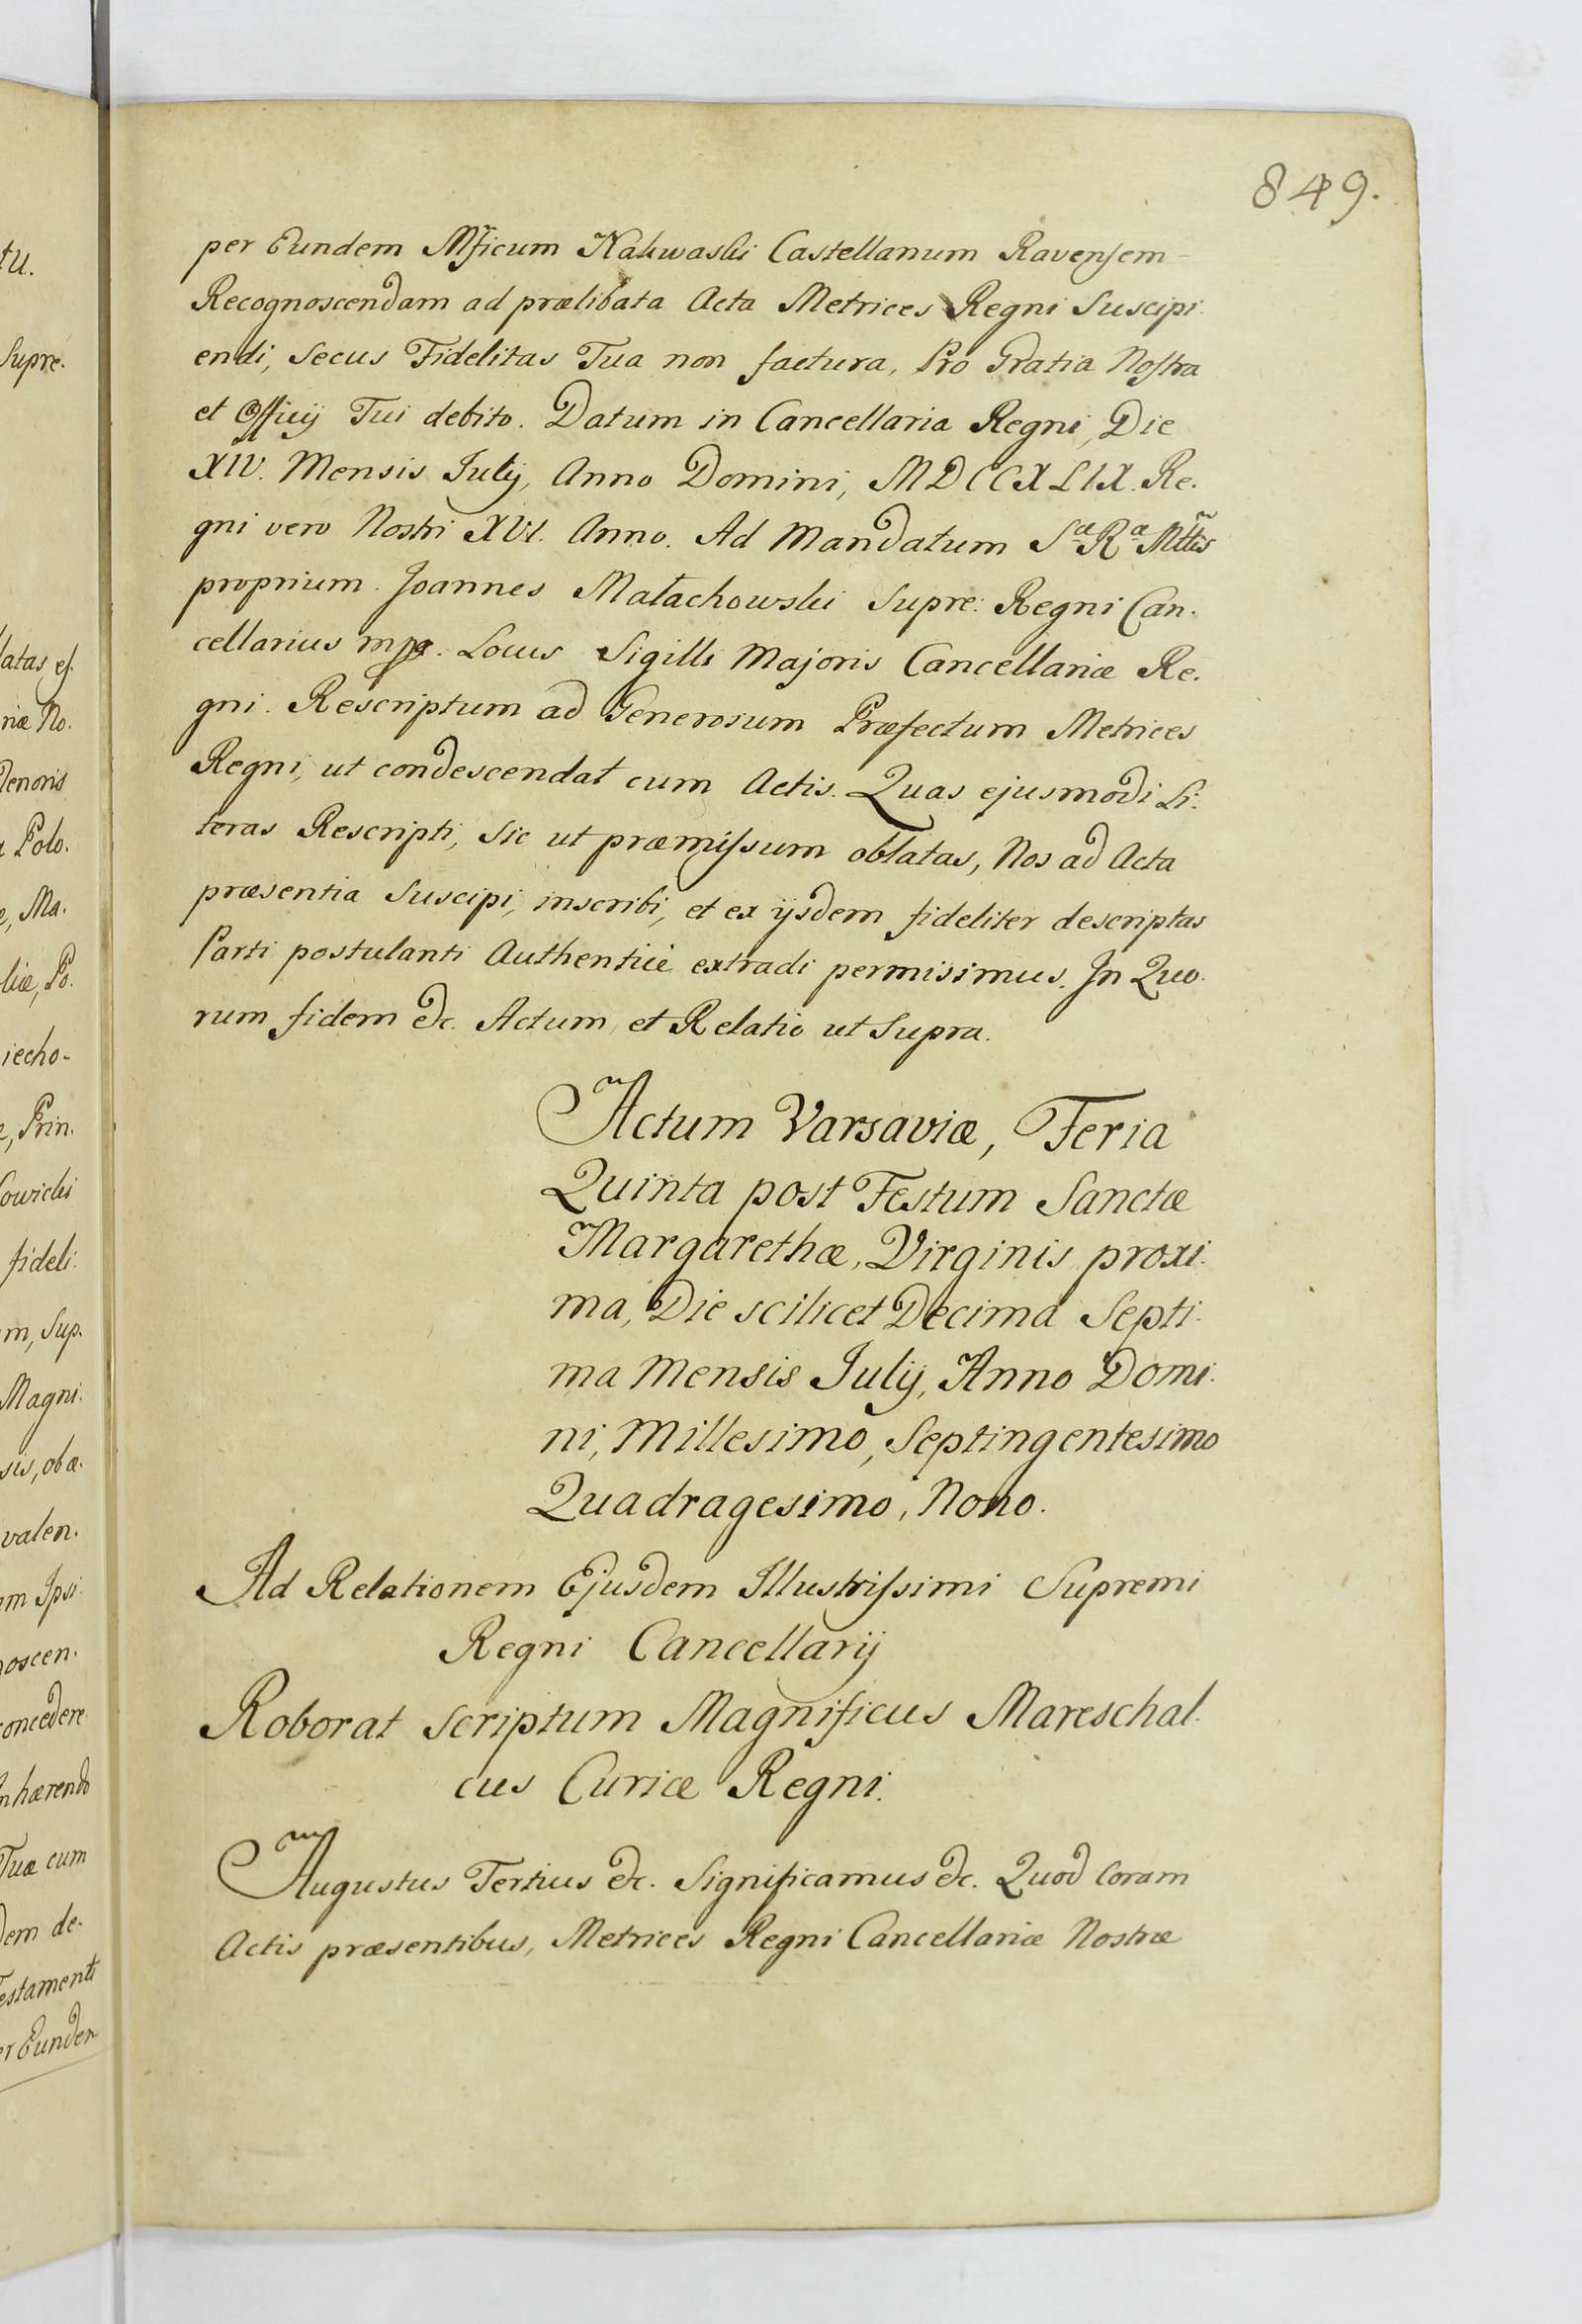 849.
per Eundem Mficum Nakwaski Castellanum Ravensem
Recognoscendam ad prælibata Acta Metrices Regni Suscipi
endi, Secus Fidelitas Tua non factura, Pro Gratia Nostra
et Officij Tui debito. Datum in Cancellaria Regni, Die
XIV. Mensis Julij, Anno Domini, MDCCXLIX. Re.
gni vero Nostri XVI. Anno. Ad Mandatum Sæ Ræ Mttis
proprium. Joannes Małachowski Supre: Regni Can.
cellarius mpa. Locus Sigilli Majoris Cancellariæ Re.
gni. Rescriptum ad Generosum Præfectum Metrices
Regni, ut condescendat cum Actis. Quas ejusmodi Li.
teras Rescripti, Sic ut præmissum oblatas, Nos ad Acta
præsentia Suscipi, inscribi, et ex ijsdem fideliter descriptas
Parti postulanti Authenticè extradi permisimus. In Quo.
rum fidem &c. Actum, et Relatio ut Supra.
Actum Varsaviæ, Feria
Quinta post Festum Sanctæ
Margarethæ, Virginis proxi.
ma, Die scilicet Decima Septi.
ma Mensis Julij, Anno Domi.
ni, Millesimo, Septingentesimo
Quadragesimo, Nono.
Ad Relationem Ejusdem Illustrissimi Supremi
Regni Cancellarij
Roborat Scriptum Magnificus Mareschal.
cus Curiæ Regni.
Augustus Tertius &c. Significamus &c. Quod Coram
Actis præsentibus, Metrices Regni Cancellariæ Nostræ